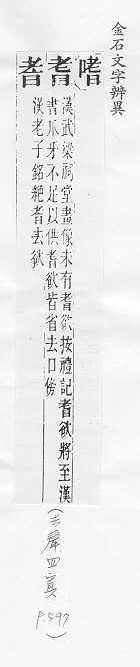 金石文字辨異
嗜
耆
漢武梁祠堂畫像未有耆欲按禮記耆欲將至漢
書爪牙不足以供耆欲皆省去口傍
耆
漢老子銘絕耆去欲
(去聲四寘
P.597)